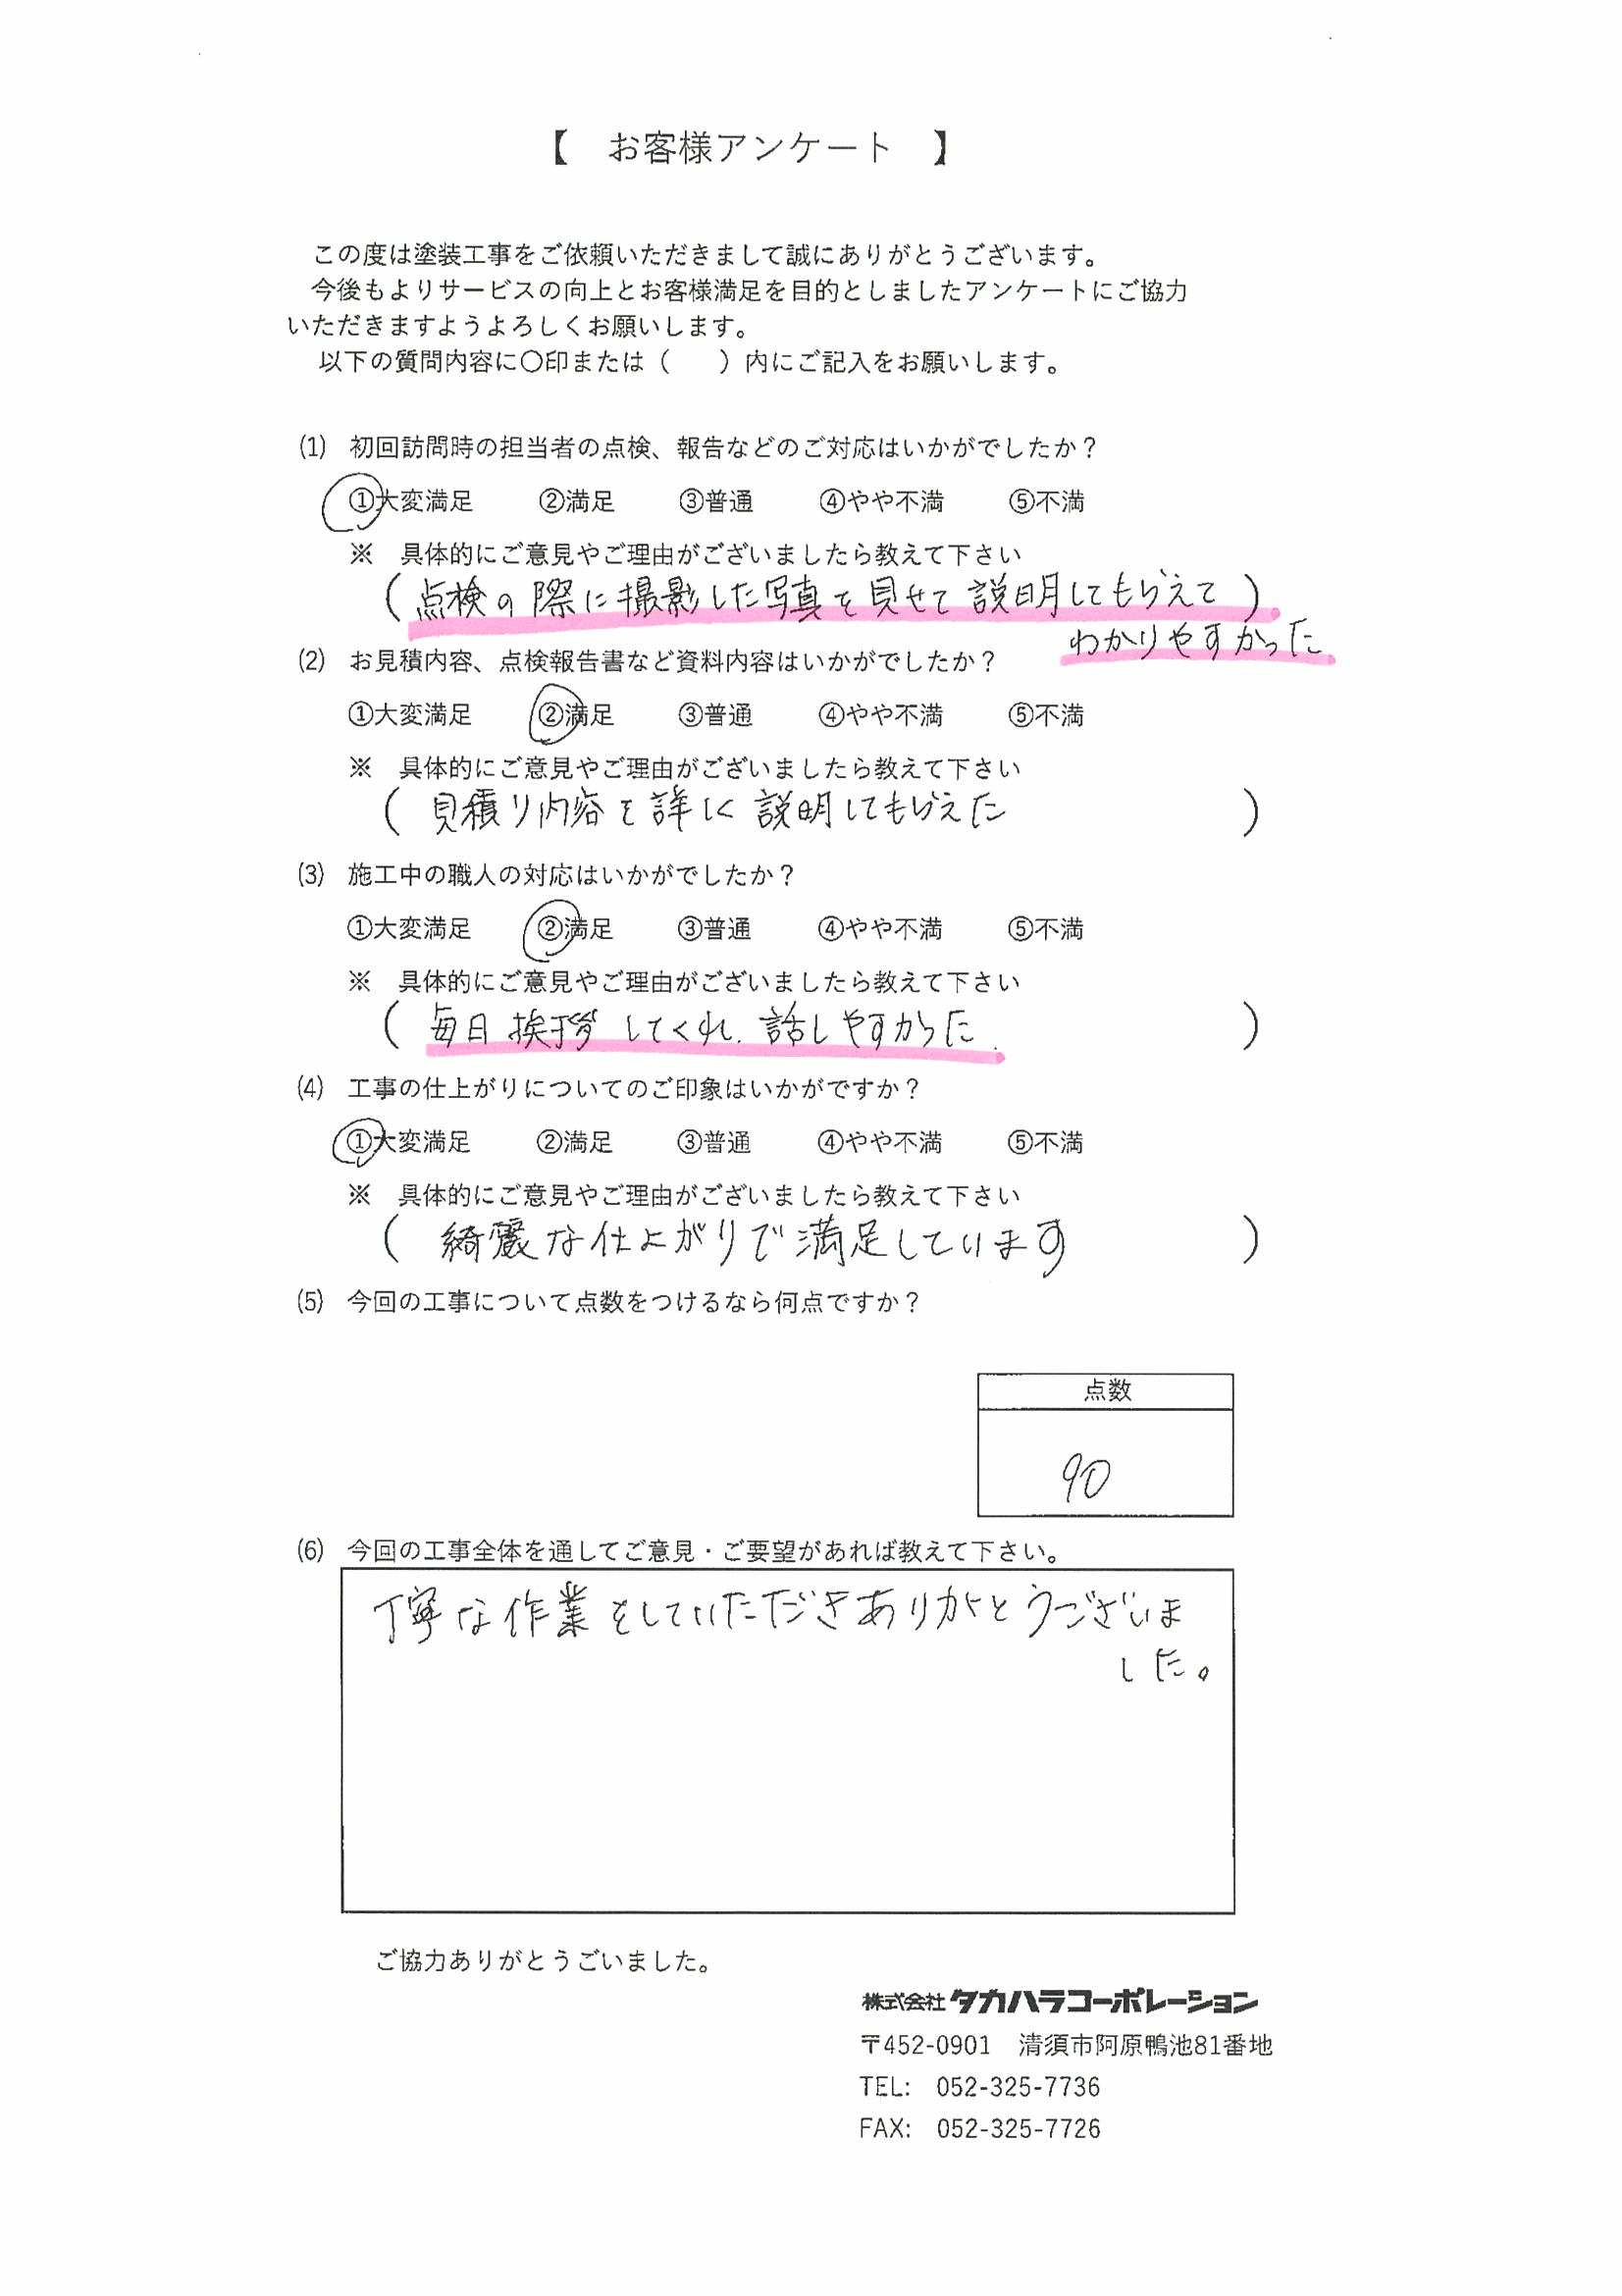 【　お客様アンケート　】
この度は塗装工事をご依頼いただきまして誠にありがとうございます。
今後もよりサービスの向上とお客様満足を目的としましたアンケートにご協力
いただきますようよろしくお願いします。
以下の質問内容に〇印または（　　）内にご記入をお願いします。
(1)　初回訪問時の担当者の点検、報告などのご対応はいかがでしたか？
①大変満足　②満足　③普通　④やや不満　⑤不満
※　具体的にご意見やご理由がございましたら教えて下さい
（点検の際に撮影した写真を見せて説明してもらえて）
わかりやすかった
(2)　お見積内容、点検報告書など資料内容はいかがでしたか？
①大変満足　②満足　③普通　④やや不満　⑤不満
※　具体的にご意見やご理由がございましたら教えて下さい
（見積り内容を詳しく説明してもらえた）
(3)　施工中の職人の対応はいかがでしたか？
①大変満足　②満足　③普通　④やや不満　⑤不満
※　具体的にご意見やご理由がございましたら教えて下さい
（毎日挨拶してくれ、話しやすかった）
(4)　工事の仕上がりについてのご印象はいかがですか？
①大変満足　②満足　③普通　④やや不満　⑤不満
※　具体的にご意見やご理由がございましたら教えて下さい
（綺麗な仕上がりで満足しています）
(5)　今回の工事について点数をつけるなら何点ですか？
点数
90
(6)　今回の工事全体を通してご意見・ご要望があれば教えて下さい。
丁寧な作業をしていただきありがとうございま
した。
ご協力ありがとうごいました。
株式会社タカハラコーポレーション
〒452-0901　清須市阿原鴨池81番地
TEL:　052-325-7736
FAX:　052-325-7726